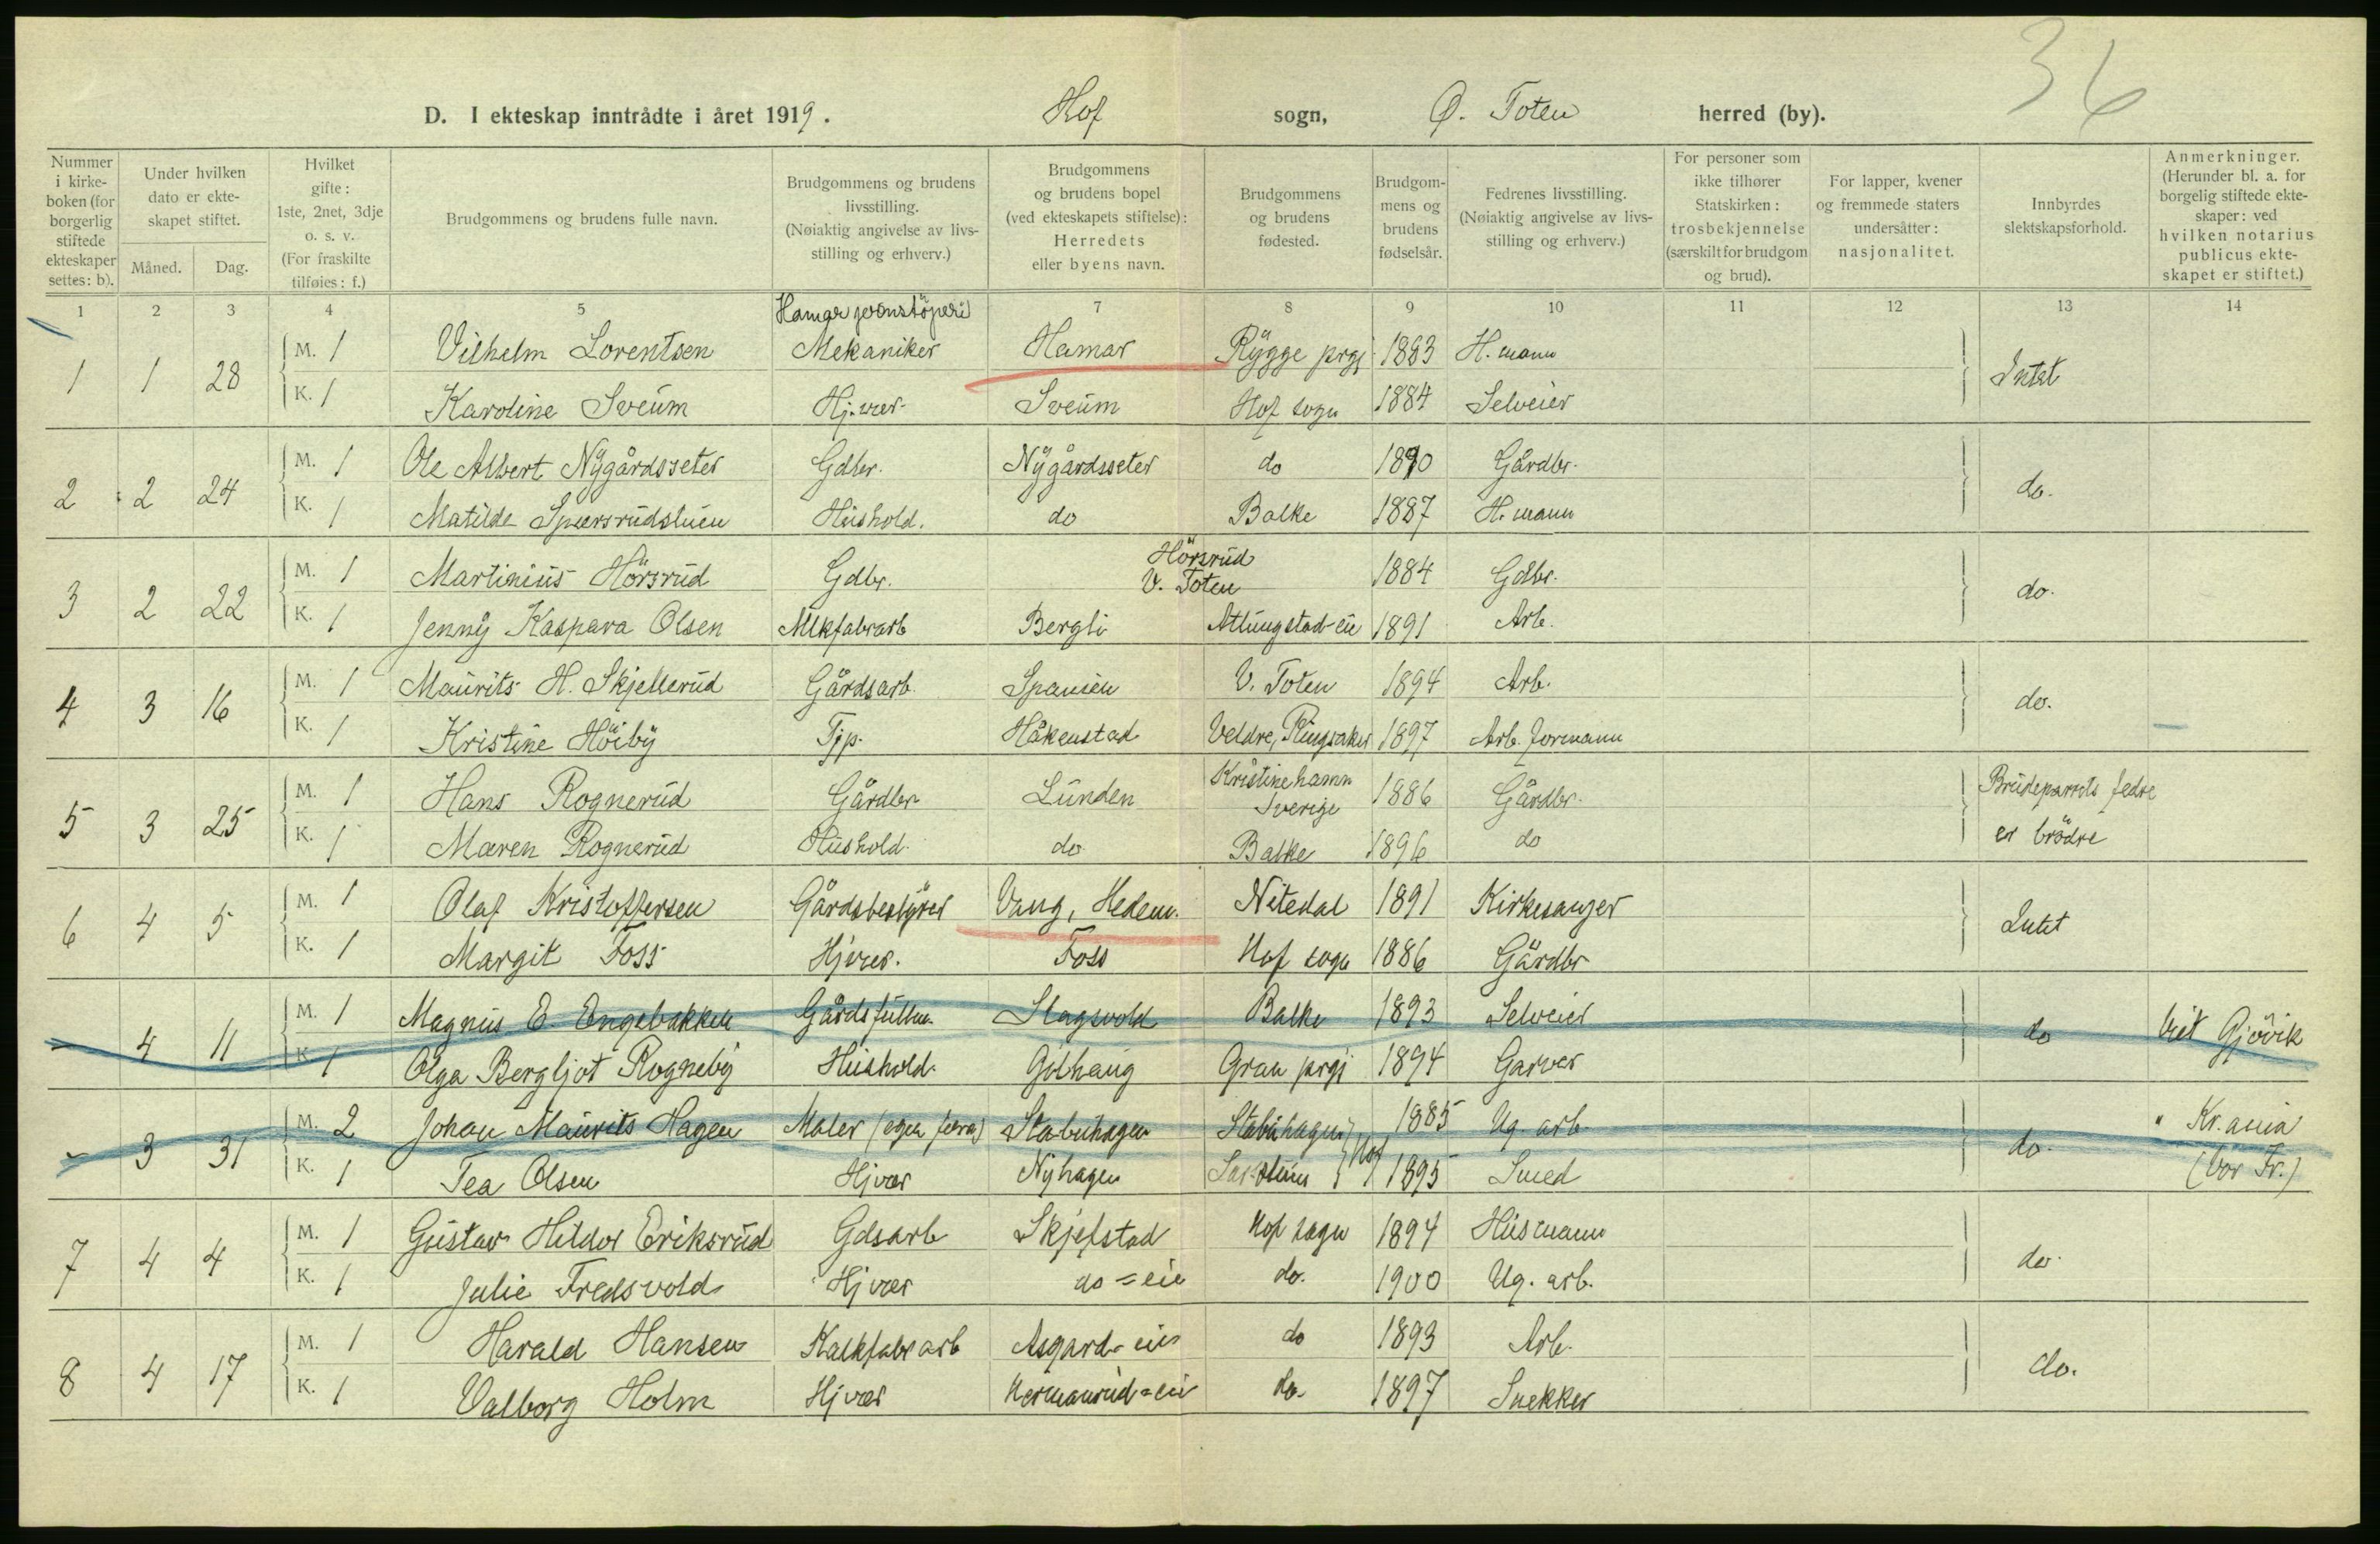 36
D. I ekteskap inntrådte i året 1919. Hof sogn, Ø. Toten herred (by).
Nummer i kirkeboken (for borgerlig stiftede ekteskaper settes: b).
Under hvilken dato er ekteskapet stiftet.
Måned. Dag.
Hvilket gifte: 1ste, 2net, 3dje o. s. v. (For fraskilte tilføies: f.)
Brudgommens og brudens fulle navn.
Brudgommens og brudens livsstilling. (Nøiaktig angivelse av livsstilling og erhverv.)
Brudgommens og brudens bopel (ved ekteskapets stiftelse): Herredets eller byens navn.
Brudgommens og brudens fødested.
Brudgommens og brudens fødselsår.
Fedrenes livsstilling. (Nøiaktig angivelse av livsstilling og erhverv.)
For personer som ikke tilhører Statskirken: trosbekjennelse (særskilt for brudgom og brud).
For lapper, kvener og fremmede staters undersåtter: nasjonalitet.
Innbyrdes slektskapsforhold.
Anmerkninger. (Herunder bl. a. for borgelig stiftede ekteskaper: ved hvilken notarius publicus ekteskapet er stiftet.)
1 2 3 4 5 7 8 9 10 11 12 13 14
Hamar jernstöperi
1 1 28 M. 1 Vilhelm Lorentsen Mekaniker Hamar Rygge prgj 1883 H. mann Intet
K. 1 Karoline Sveum Hj. vær. Sveum Hof sogn 1884 Selveier
2 2 24 M. 1 Ole Albert Nygårdsseter Gdbr. Nygårdsseter do 1890 Gårdbr. do.
K. 1 Matilde Sparsrudstuen Hushold. do Balke 1887 H. mann
3 2 22 M. 1 Martinius Hörsrud Gdbr. Hörsrud V. Toten 1884 Gdbr. do.
K. 1 Jenny Kaspara Olsen Mlkfabrarb Bergli Atlungstad-eie 1891 Arb.
4 3 16 M. 1 Maurits H. Skjellerud Gårdsarb. Spanien V. Toten 1894 Arb. do.
K. 1 Kristine Höiby Tjp. Håkenstad Veldre, Ringsaker 1897 Arb. formann
5 3 25 M. 1 Hans Rognerud Gårdbr. Lunden Kristinehamn Sverige 1886 Gårdbr. Brudeparrets fedre
K. 1 Maren Rognerud Hushold. do Balke 1896 do er brödre
6 4 5 M. 1 Olaf Kristoffersen Gårdsbestyrer Vang, Hedem. Nitedal 1891 Kirkesanger Intet
K. 1 Margit Foss Hjvær. Foss Hof sogn 1886 Gårdbr
- 4 11 M. 1 Magnus E. Engebakken Gårdsfullm. Stagsvold Balke 1893 Selveier do Viet Gjövik
K. 1 Olga Bergljot Rogneby Hushold. Gulhaug Gran prgj 1894 Garver
- 3 31 M. 2 Johan Maurits Hagen Maler (egen forr.) Stabuhagen Stabuhagen } Hof 1885 Ug. arb. do. " Kr.ania
K. 1 Tea Olsen Hjvær Nyhagen 1895 Smed (bor Fr.)
7 4 4 M. 1 Gustav Hildor Eriksrud Gdsarb Skjefstad Hof sogn 1894 Husmann do.
K. 1 Julie Fredsvold Hjvær do = eie do. 1900 Ug. arb.
8 4 17 M. 1 Harald Hansen Kalkfabrarb Asgard = eie do 1893 Arb. do.
K. 1 Valborg Holm Hjvær Hermanrud = eie do. 1897 Snekker